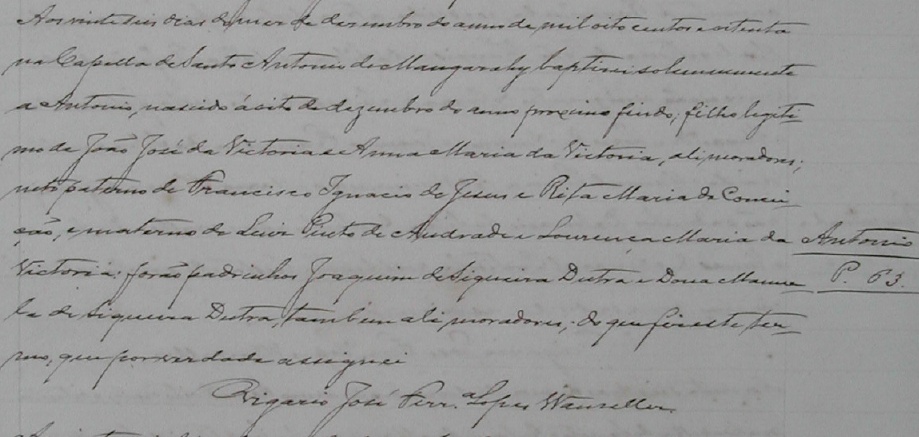 Aos vinte seis dias do mez de dezembro do anno de mil oito centos e oitenta
na Capella de Santo Antonio do Mangarahy baptisei solemnemente
a Antonio, nascido á oito de dezembro do anno proximo findo; filho legiti=
mo de João José da Victoria e Anna Maria da Victoria, ali moradores;
neto paterno de Francisco Ignacio de Jesus e Rita Maria da Concei=
ção, e materno de Luis Pinto de Andrade e Lourença Maria da
Victoria: forão padrinhos Joaquim de Siqueira Dutra e Dona Manoe=
la de Siqueira Dutra, tambem ali moradores; do que fiz este ter=
mo, que por verdade assignei
Vigario José Ferr.ª Lopes Wanzeller
Antonio
P. 63.